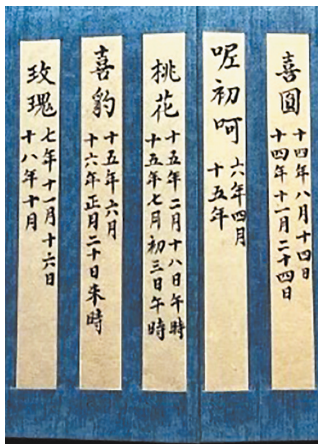 喜圓
十四年八月十四日
十四年十一月二十四日
呢初呵
六年四月
十五年
桃花
十五年二月十八日午時
十五年七月初三日午時
喜豹
十五年六月
十六年正月二十日未時
玫瑰
七年十一月十六日
十八年十月